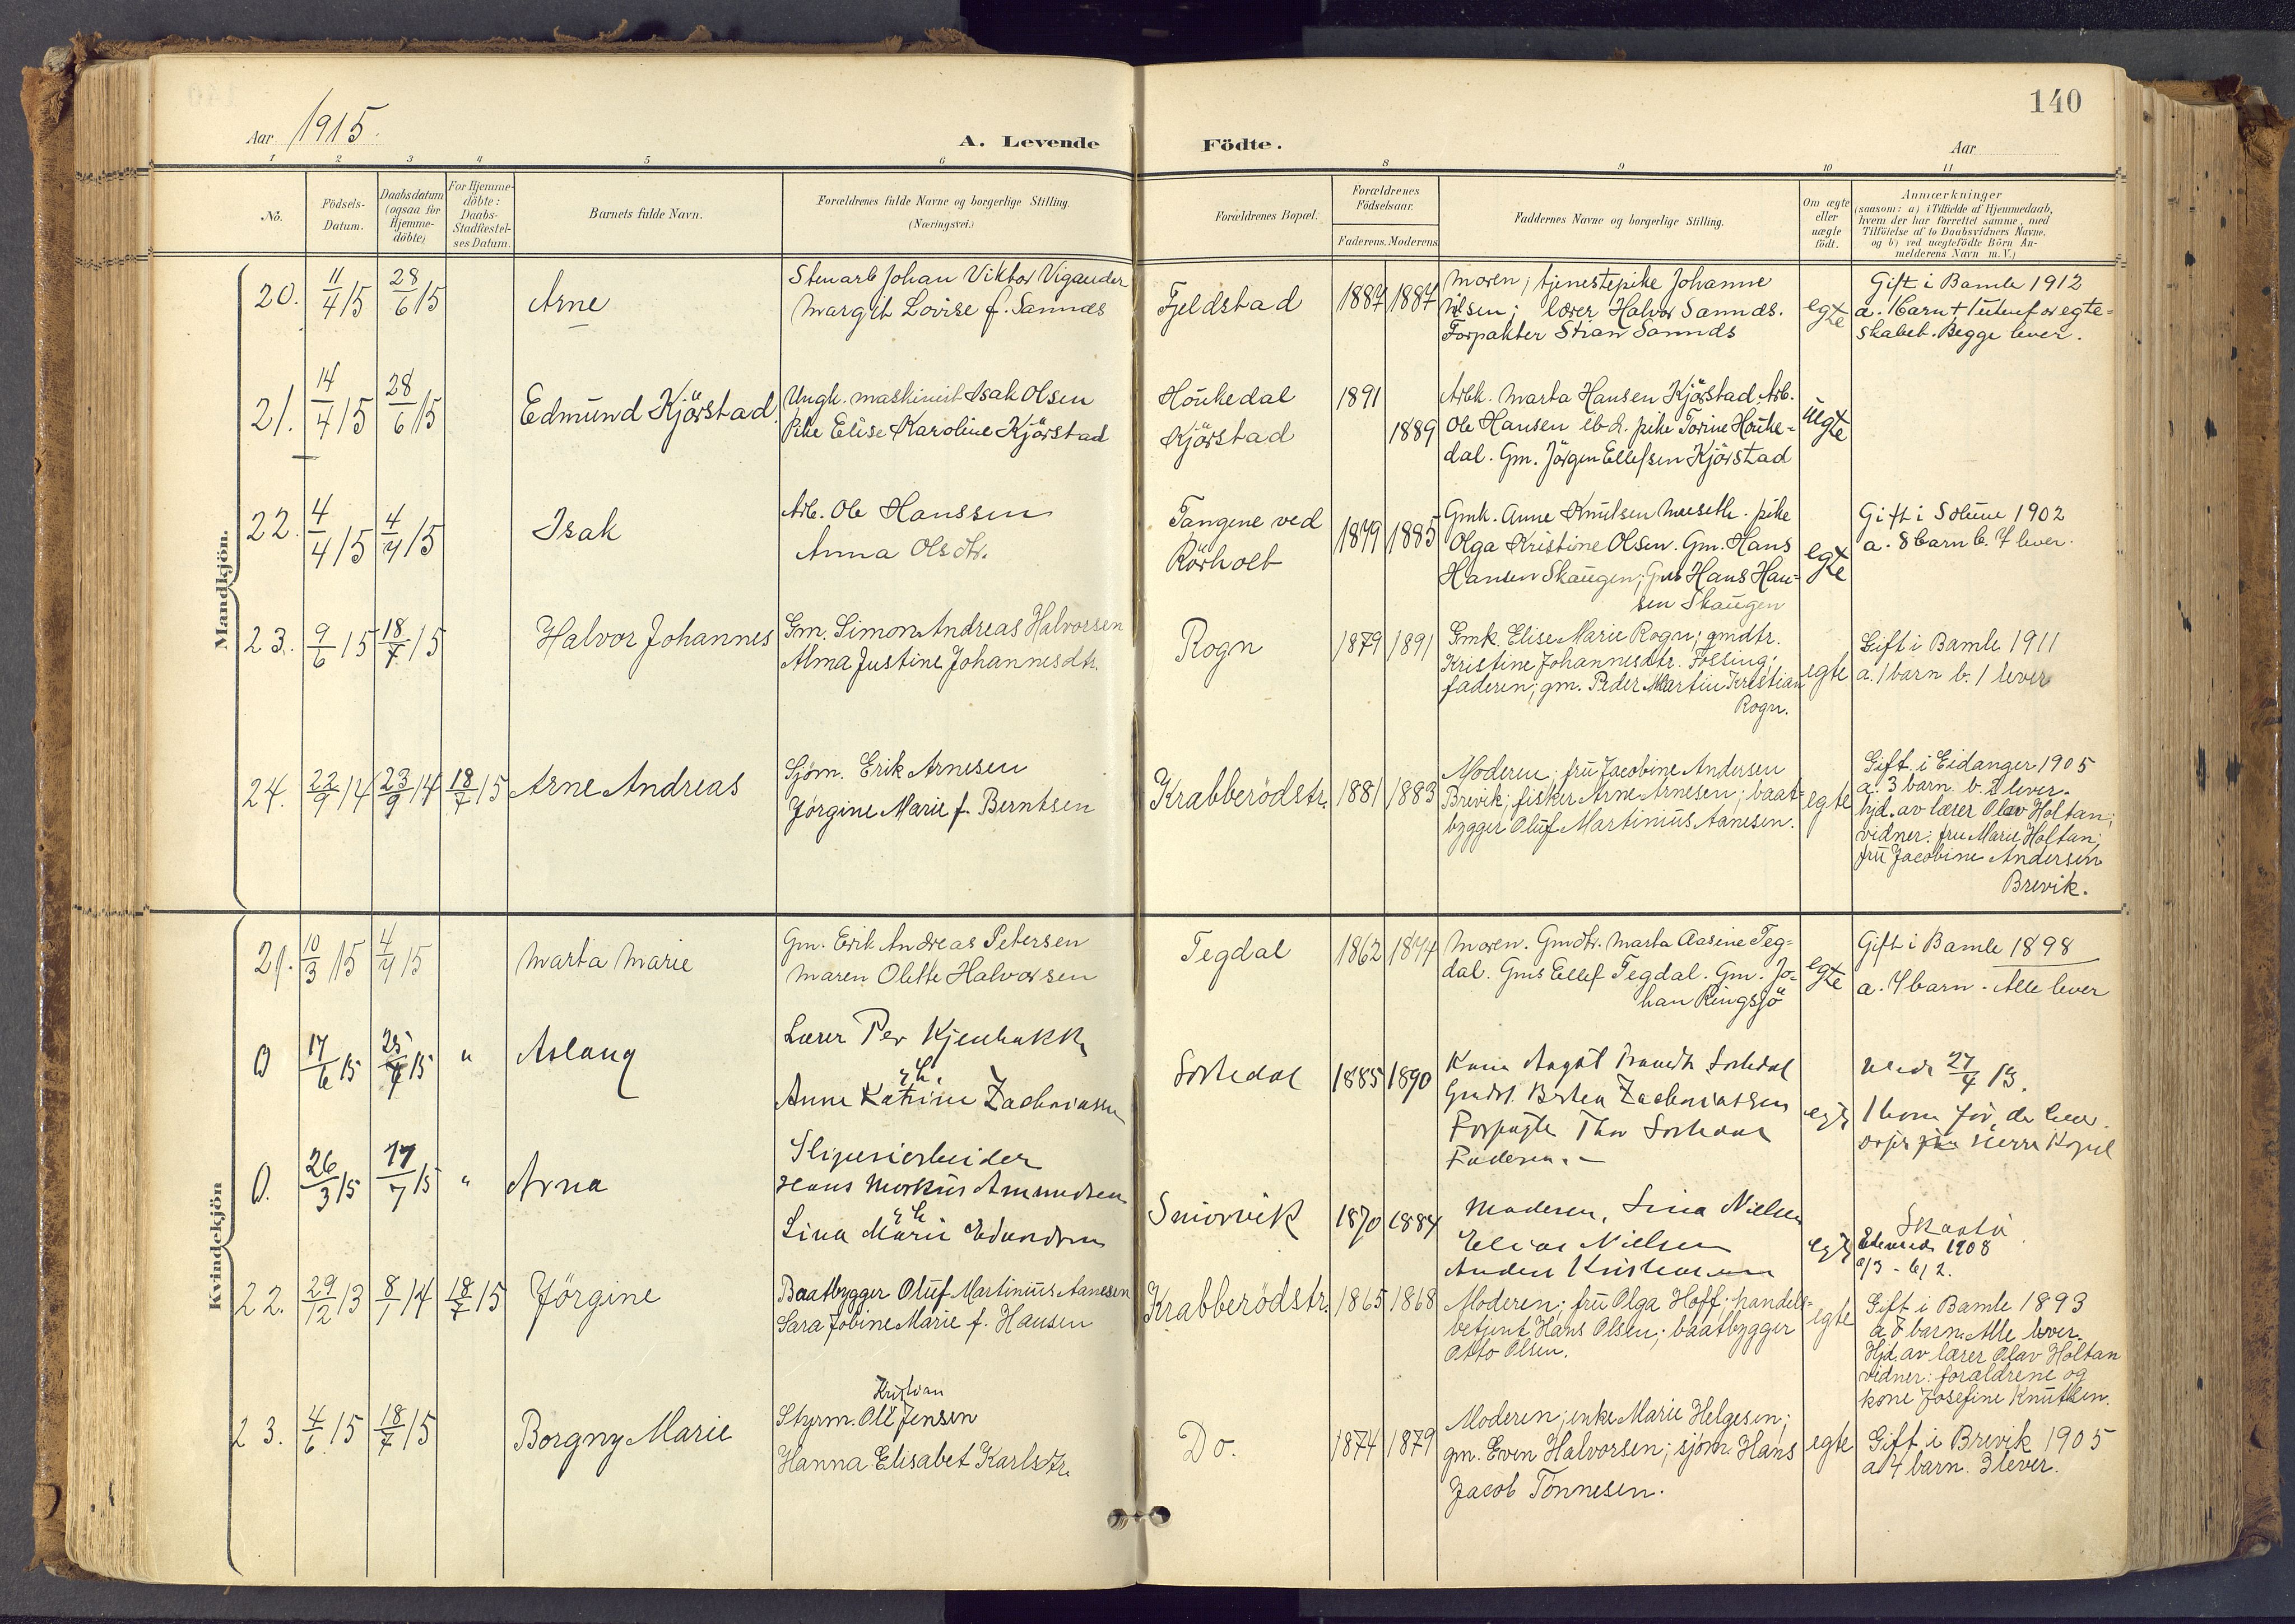 140
Aar 1915.
A. Levende Födte.
Aar
1 2 3 4 5 6 8 9 10 11
No.
Födsels-
Datum.
Daabsdatum
(ogsaa for
Hjemme-
döbte)
For Hjemme-
döbte:
Daabs-
Stadfæstel-
ses Datum.
Barnets fulde Navn.
Forældrenes fulde Navne og borgerlige Stilling.
(Næringsvei.)
Forældrenes Bopæl.
Forældrenes
Födselsaar.
Faderens. Moderens
Faddernes Navne og borgerlige Stilling.
Om ægte
eller
uægte
födt.
Anmærkninger
(saasom: a) i Tilfælde af Hjemmedaab,
hvem der har forrettet samme, med
Tilföielse af to Daabsvidners Navne,
og b) ved uægtefödte Börn An-
melderens Navn m.V.)
Mandkjön.
20. 11/4 15 28/6 15
Arne
Stuart Johan Viktor Vigander
Margit Lovise f. Sannes
Fjeldstad
1887 1887
Moren; tjenestepike Johanne
Nilsen; lærer Halvor Sannes.
Forpakter Stian Sannes
egte
Gift i Bamle 1912
a. 1 barn + 1 utenfor egte-
skabet. Begge lever.
21. 14/4 15 28/6 15
Edmund Kjörstad
Ungk. maskinist Isak Olsen
Pike Elise Karoline Kjörstad
Houkedal
Kjörstad
1891
1889
Arbk. Marta Hansen Kjörstad. Arb.
Ole Hansen ibd. pike Torine Houke-
dal. Gm. Jörgen Ellefsen Kjörstad
uegte
22. 4/4 15 4/7 15
Isak
Arb. Ole Hanssen
Anna Olsdtr.
Tangene ved
Rörholt
1879 1885
Gmk. Anne Knutsen pike
Olga Kristine Olsen. Gm. Hans
Hansen Skaugen; Gms Hans Han-
sen Skaugen
egte
Gift i Solum 1902
a. 8 barn b. 7 lever.
23. 9/6 15 18/7 15
Halvor Johannes
Gm. Simon Andreas Halvorsen
Alma Justine Johannesdtr.
Rogn
1879 1891
Gmk. Elise Marie Rogn; gmdtr.
Kristine Johannesdtr. Fossing;
faderen; gm. Peder Martin Kristian
Rogn.
egte
Gift i Bamle 1911
a. 1 barn b. 1 lever
24. 22/9 14 23/9 14 18/7 15
Arne Andreas
Sjöm. Erik Arnesen
Jörgine Marie f. Berntsen
Krabberödstr.
1881 1883
Moderen; fru Jacobine Andersen
Brevik; fisker Arne Arnesen; baat-
bygger Oluf Martinius Aanesen.
egte
Gift i Eidanger 1905
a. 3 barn b. 2 lever.
hjd. av lærer Olav Holtan;
vidner: fru Marie Holtan;
fru Jacobine Andersen
Brevik.
Kvindekjön
21. 10/3 15 4/7 15
Marta Marie
Gm. Erik Andreas Petersen
Maren Olette Halvorsen
Tegdal
1862 1874
Moren. Gmdtr. Marta Aasine Teg-
dal. Gms Ellef Tegdal. Gm. Jo-
han Ringsjö
egte
Gift i Bamle 1898
a. 4 barn. Alle lever
0 17/6 15 25/7 15 "
Aslaug
Lærer Per
Anne Katrine
1885 1890
egte
27/4 13.
0. 26/3 15 17/7 15 "
Arna
Sliperiarbeider
Hans Markus Amundsen
Lina Marie
1870 1884
Moderen, Lina Nielsen
Elias Nielsen
Anders
egte
1908
22. 29/12 13 8/1 14 18/7 15
Jörgine
Baatbygger Oluf Martinius Aanesen
Sara Jobine Marie f. Hansen
Krabberödstr.
1865 1868
Moderen; fru Olga Hoff; handels-
betjent Hans Olsen; baatbygger
Otto Olsen.
egte
Gift i Bamle 1893
a. 7 barn. Alle lever.
Hjd. av lærer Olav Holtan
vidner: forældrene og
kone Josefine Knutsen.
23. 4/6 15 18/7 15
Borgny Marie
Kristian
Styrm. Ole Jensen
Hanna Elisabet Karlsdtr.
Do.
1874 1879
Moderen; enke Marie Helgesen;
gm. Even Halvorsen; sjöm. Hans
Jacob Tönnesen.
egte
Gift i Brevik 1905
a. 4 barn. 3 lever.